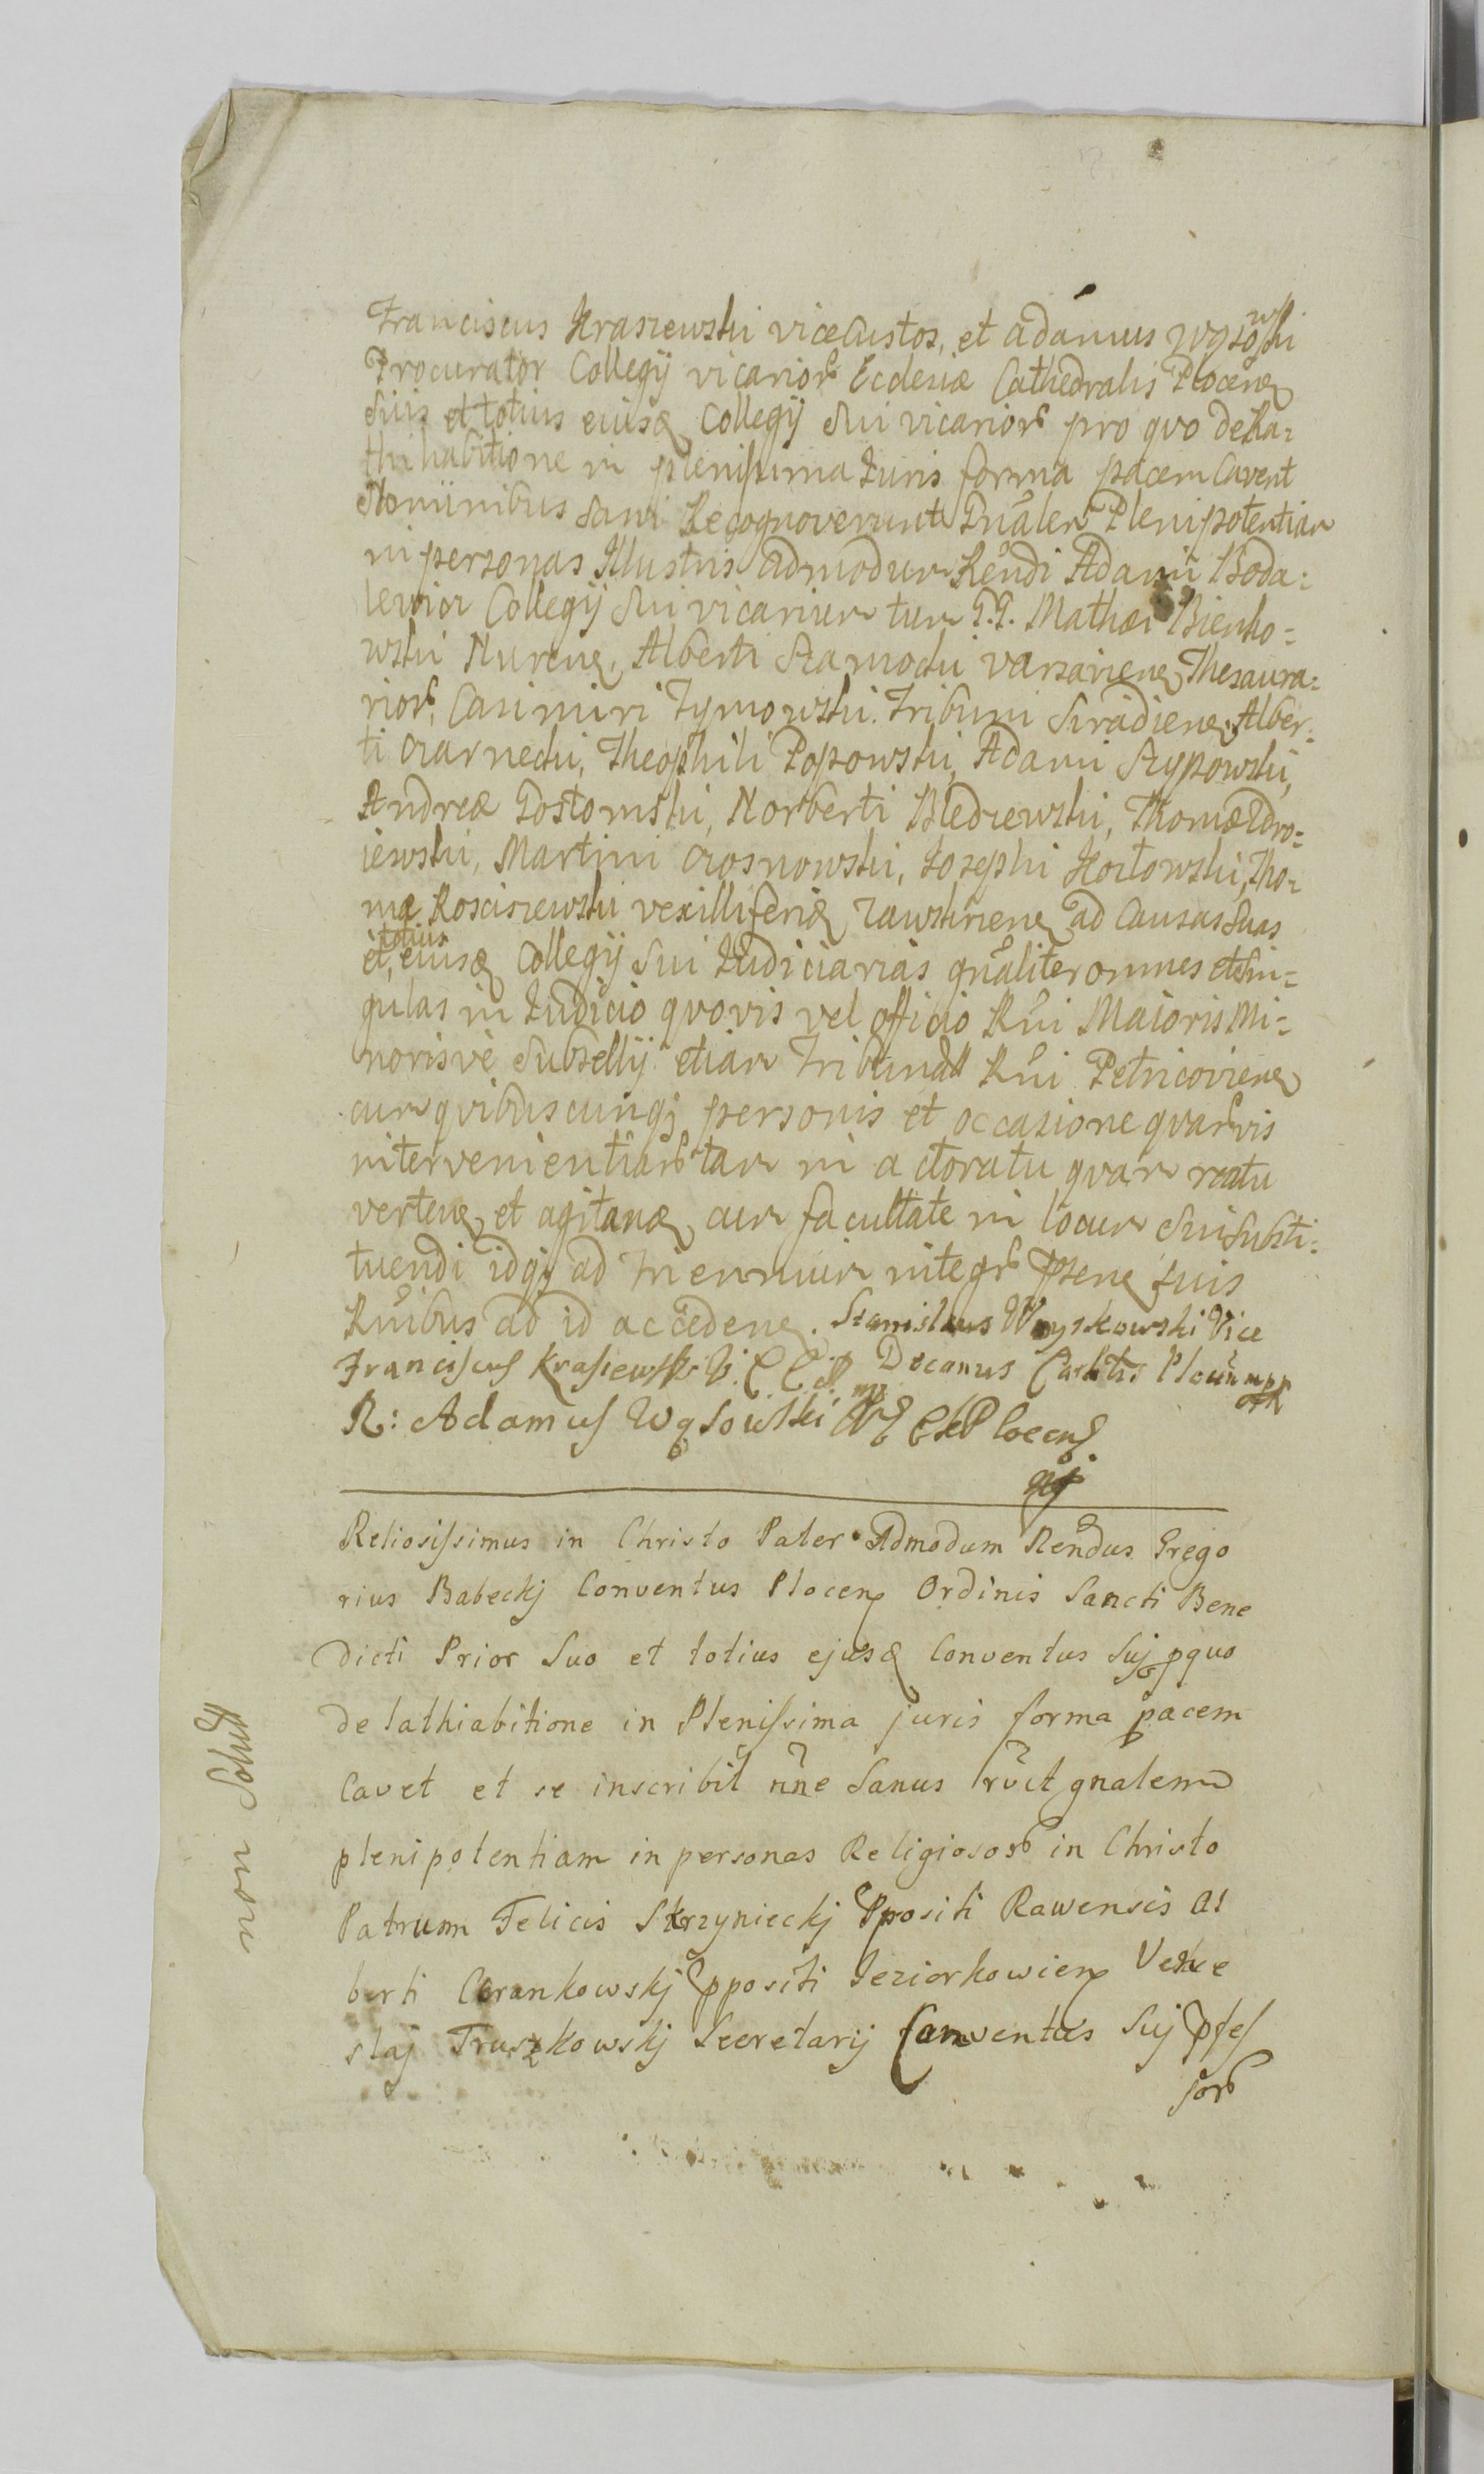 Franciscus Kraszewski viceCustos, et Adamus Wąsowski
Procurator Collegij vicarior Ecclesiæ Cathedralis Plocen
Suis et totius eiusd Collegij Sui vicarior pro quo de Ra=
thihabitione in plenissima Iuris forma pacem Cavent
Nominibus Sani Recognoverunt Gnalem Plenipotentiam
in personas Illustris admodum Rendi Adami Boda=
lewicz Collegij Sui vicarium tum G.G. Mathæi Bienko=
wski Nuren, Alberti Szamocki Varsavien Thesaura=
rior, Casimiri Tymowski Tribuni Siradien, Alber=
ti Czarnecki, Theophili Popowski, Adami Szypowski,
Andreæ Gostomski, Norberti Bledzewski, Thomæ Zdro=
iewski, Martini Czosnowski, Iosephi Kozłowski, Tho=
mæ Kosciszewski vexilliferid Zawskrzen ad Causas Suas
et totius eiusd Collegij Sui Iudiciarias gnaliter omnes et Sin=
gulas in Iudicio quovis vel officio Rni Maioris Mi=
norisve Subsellij etiam Tribunali Rni Petricovien
cum quibuscunq personis et occasione quarvis
intervenientiar tam in actoratu quam reatu
verten et agitand cum facultate in locum Sui Substi=
tuendi idq ad Triennium integr psen Suis
Rnibus ad id acceden. Stanislaus Wyszkowski Vice
Decanus Cathlis Plocen mpp
Franciscus Krasiewski V. C. C. P. mp
R: Adamus Wąsowski Plocens
Reliosissimus in Christo Pater Admodum Rendus Grego
rius Babeckj Conventus Plocen Ordinis Sancti Bene
dicti Prior Suo et totius ejusd Conventus Suj pquo
de lathiabitione in Plenissima juris forma pacem
Cavet et se inscribit nne Sanus rvit gnalem
plenipotentiam in personas Religiosor in Christo
Patrum Felicis Skrzynieckj Ppositi Rawensis Al
berti Czrankowskj Ppositi Jeziorkowien Vence
slaj Truszkowskj Secretarij Conventus Suj pfes
sor
non Solvit